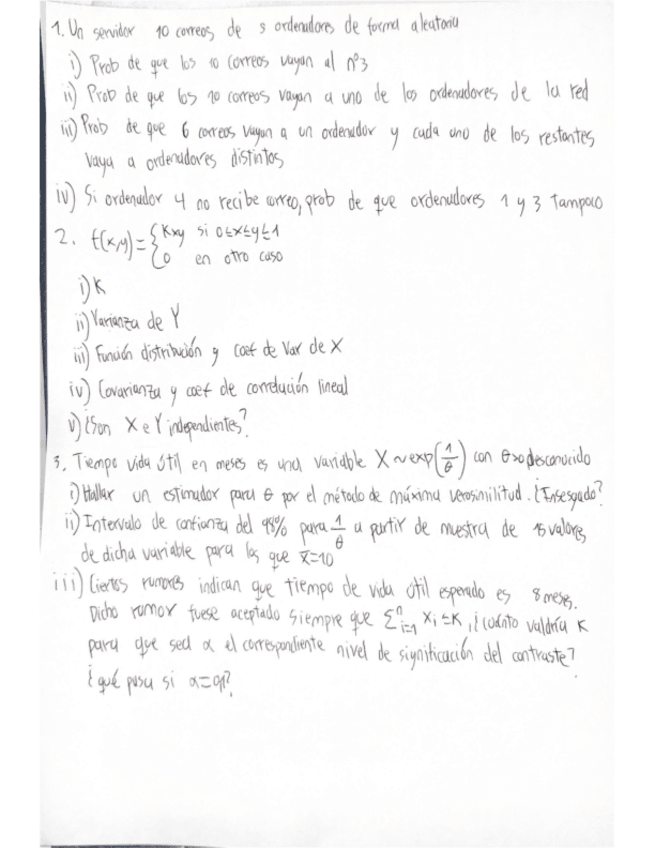 1. Un servidor 10 correos de 5 ordenadores de forma aleatoria
i) Prob de que los 10 correos vayan al nº3
ii) Prob de que los 10 correos vayan a uno de los ordenadores de la red
iii) Prob de que 6 correos vayan a un ordenador y cada uno de los restantes
vaya a ordenadores distintos
iv) Si ordenador 4 no recibe correo, prob de que ordenadores 1 y 3 tampoco
2. f(x,y) = { Kxy si 0≤x≤y≤1
0 en otro caso
i) K
ii) Varianza de Y
iii) Función distribución y coef de Var de X
iv) Covarianza y coef de correlación lineal
v) ¿Son X e Y independientes?
3. Tiempo vida útil en meses es una variable X ~ exp(1/θ) con θ>0 desconocido
i) Hallar un estimador para θ por el método de máxima verosimilitud. ¿Insesgado?
ii) Intervalo de confianza del 98% para 1/θ a partir de muestra de 15 valores
de dicha variable para los que x̄=10
iii) Ciertos rumores indican que tiempo de vida útil esperado es 8 meses.
Dicho rumor fuese aceptado siempre que Σⁿᵢ₌₁ xi ≤ K, ¿cuánto valdría K
para que sea α el correspondiente nivel de significación del contraste?
¿qué pasa si α=0,1?